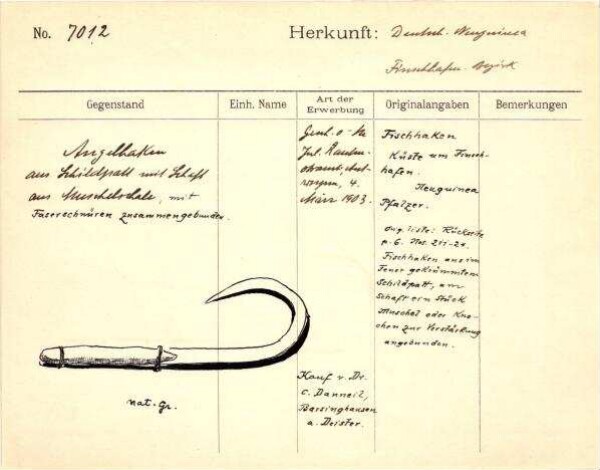 No. 7012
Herkunft: Deutsch-Neuguinea
Finschhafen-Bezirk
Gegenstand
Einh. Name
Art der Erwerbung
Originalangaben
Bemerkungen
Angelhaken
aus Schildpatt mit Schaft
aus Muschelschale, mit
Faserschnüren zusammengebunden.
Jul.
4.
März 1903.
Kauf v. Dr.
C. Danneil,
Barsinghausen
a. Deister.
Fischhaken
Küste um Finsch-
hafen.
Neuguinea
Pfalzer.
Orig. liste: Rückseite
p. 6. Nos. 211-20.
Fischhaken aus im
Feuer gekrümmtem
Schildpatt, am
Schaft ein Stück
Muschel oder Kno-
chen zur Verstärkung
angebunden.
nat. Gr.